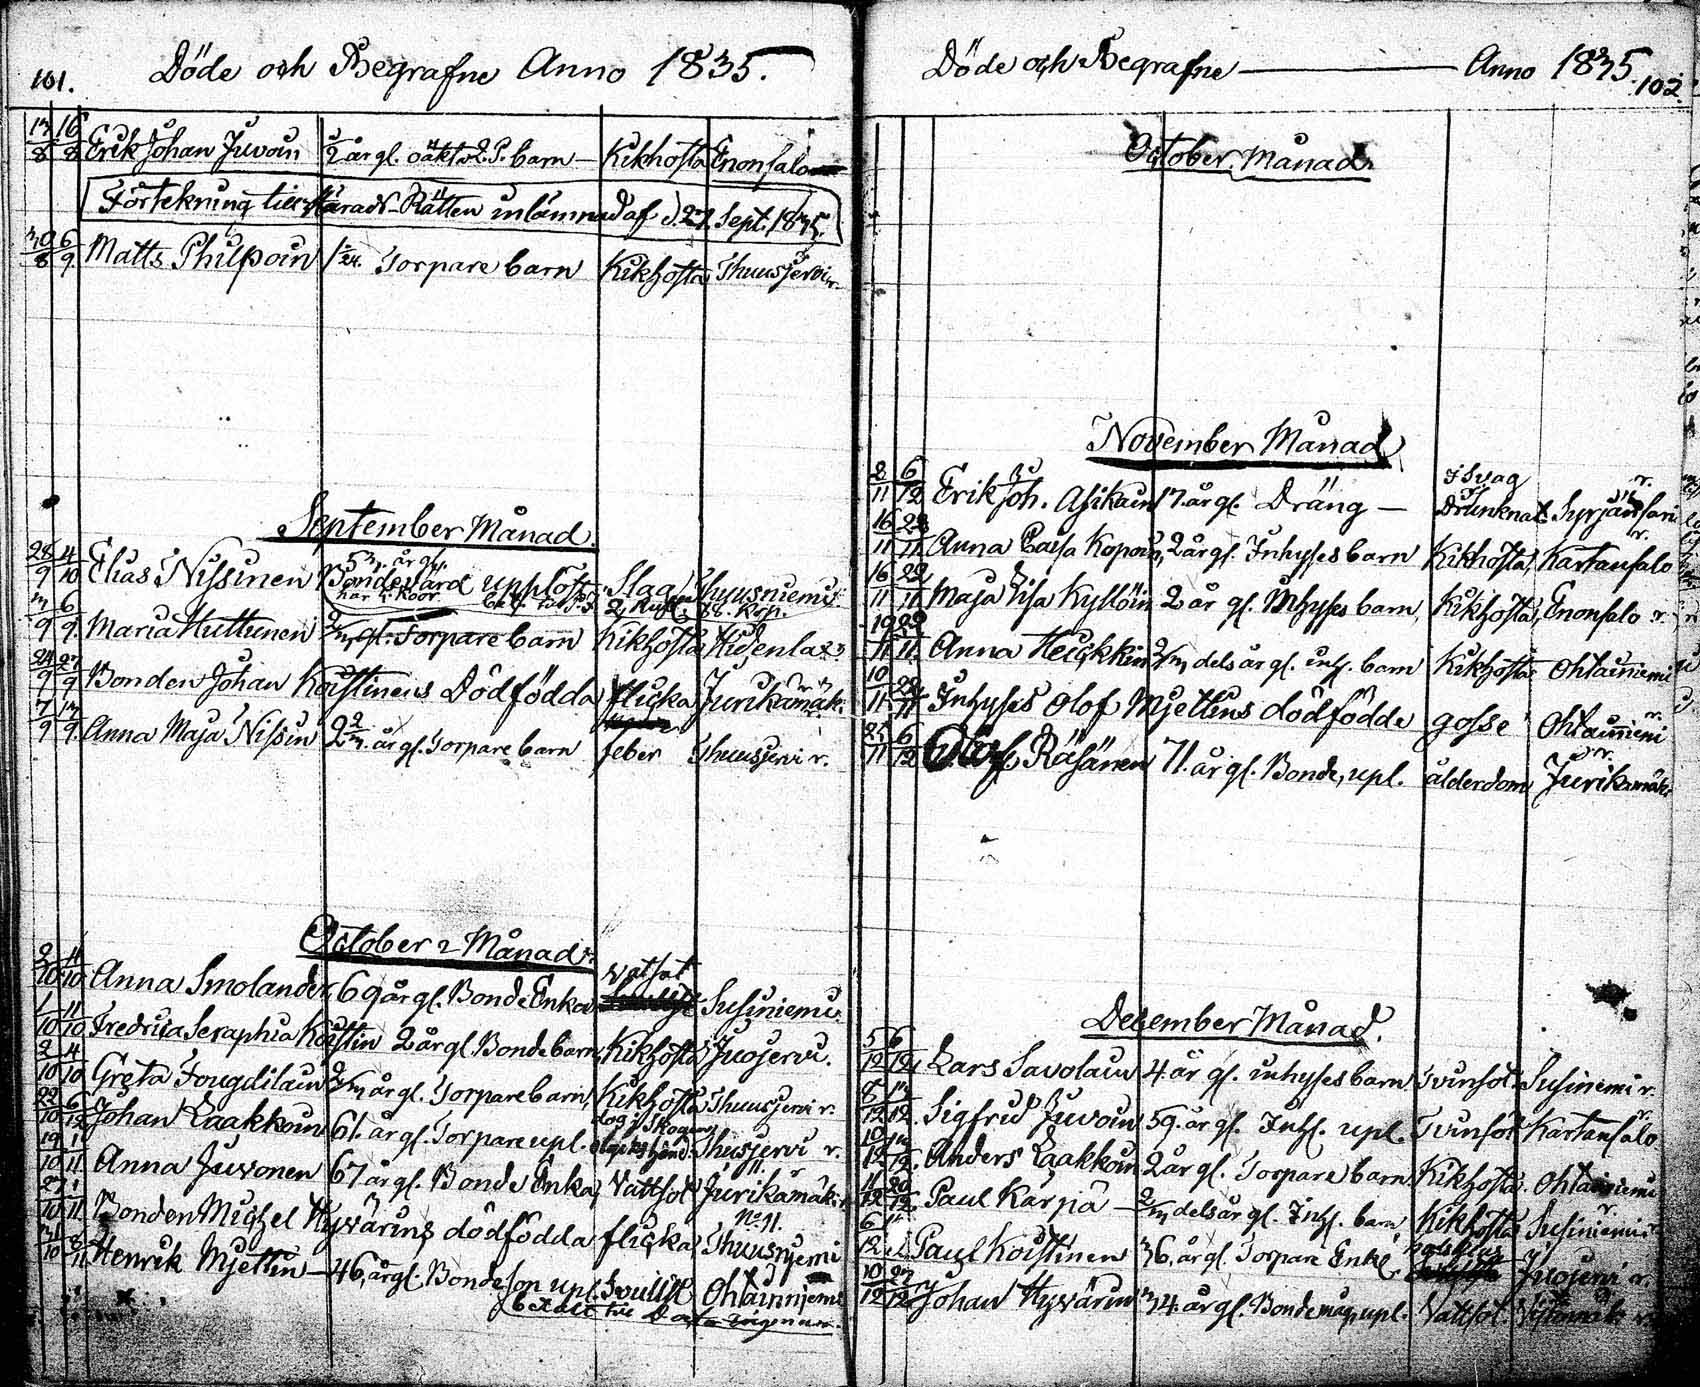 101. Döde och Begrafne Anno 1835.
13/8 16/8 Erik Johan Juvoin 1/2 år gl. oäkta barn — Kikhosta Enonsalo
Förtekning till Härads-Rätten inlämnad af d. 27. Sept. 1835.
30/8 6/9. Matts Philpoin Torpare barn Kikhosta Thuusjervi r.
September Månad.
28/9 4/10 Elias Nissinen 53. år gl. Bondevärd upplöst Slag Thuusniemi
9 6/9. Maria Huttunen gl. Torpare barn Kikhosta Hidenlax
24/9 27/9 Bonden Johan Koistinens Dödfödda flicka Jurikamäki
7/9 13/9. Anna Maja Nissin 2 2/m. år gl. Torpare barn feber Thuusjervi r.
October Månad.
2/10 4/10 Anna Smolander, 69 år gl. Bonde Enka vatsot Susiniemi
1/10 11/10 Fredrica Seraphia Koistin 2 år gl. Bonde barn, Kikhosta Juojervi.
2/10 4/10 Greta Fougdilain år gl. Torpare barn, Kikhosta Thuusjervi r.
22/10 6/12 Johan Laakkoin 61. år gl. Torpare upl. dog i Skogen Thusjervi r.
19/10 1/11. Anna Juvonen 67 år gl. Bonde Enka, Vattsot Jurikamäki
27/10 1/11. Bonden Michel Hyvärins dödfödda flicka, Thuusnjemi No 11.
31/10 8/11 Henrik Mjettin — 46, år gl. Bondeson upl. Ohtainnjemi
Döde och Begrafne — Anno 1835. 102.
October Månad.
November Månad
8/11 6/12 Erik Joh. Asikain 17. år gl. Dräng — i Svag Drunknat Syrjänsari r.
16/11 22/11 Anna Caisa Kopoin, 2 år gl. Inhyses barn Kikhosta, Kartansalo r.
16/11 22/11 Maja Lisa Kyllöin 2 år gl. Inhyses barn, Kikhosta, Enonsalo r.
19/11 22/11. Anna Heickkin 2/m dels år gl. inh. barn Kikhosta Ohtainiemi
10/11 22/11 Inhyses Olof Mjettins dödfödde gosse Ohtainiemi r.
25/11 6/12 Olof Räsänen 71. år gl. Bonde, upl. ålderdom Jurikamäki r.
December Månad.
5/12 6/12. Lars Savolain 4 år gl. inhyses barn Tvinsot. Susiniemi r.
8/12 Sigfrid Juvoin 59. år gl. Inh. upl. Tvinsot Kartansalo r.
10/12 Anders Laakkoin 2 år gl. Torpare barn Kikhosta. Ohtainiemi
11/12 20/12. Paul Karpa — 2/m dels år gl. Inh. barn Kikhosta Susiniemi r.
6/12 Paul Koistinen 36, år gl. Torpare Enkl. Juojervi r.
10/12 27/12 Johan Hyvärin 74. år gl. Bonde måg, upl. Vattsot.